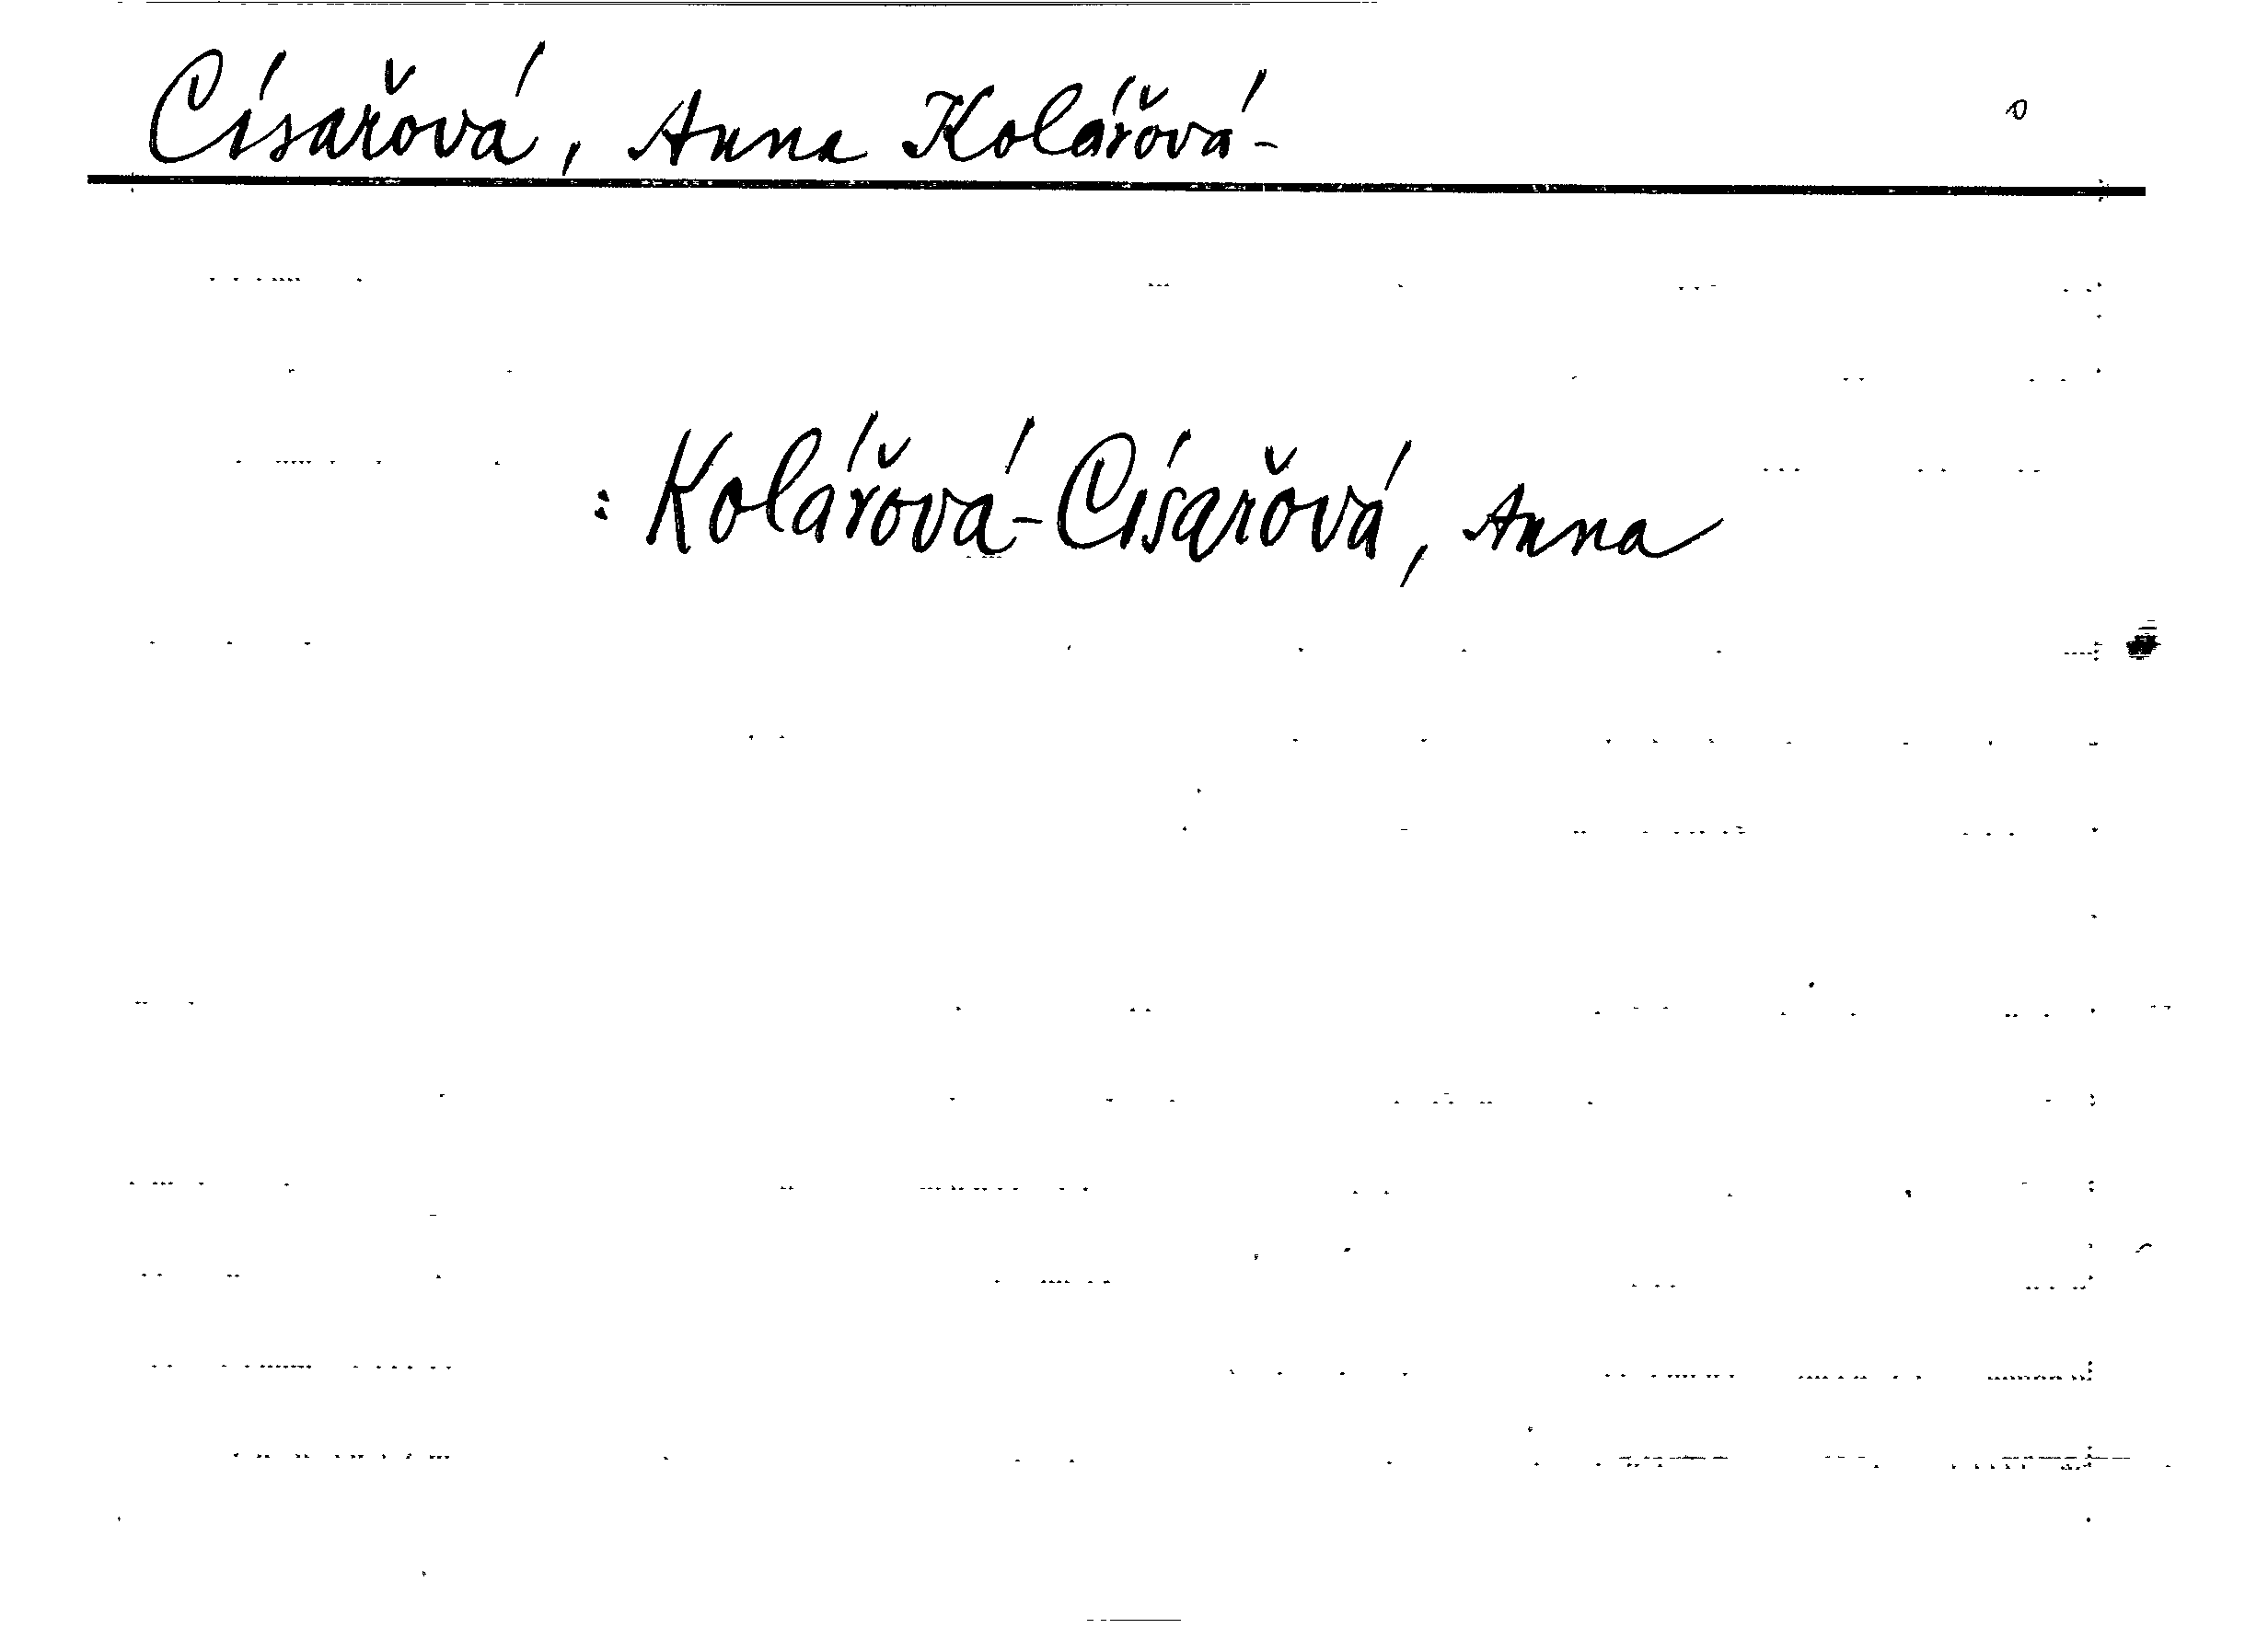 Císařová, Anna Kolářová-
: Kolářová-Císařová, Anna